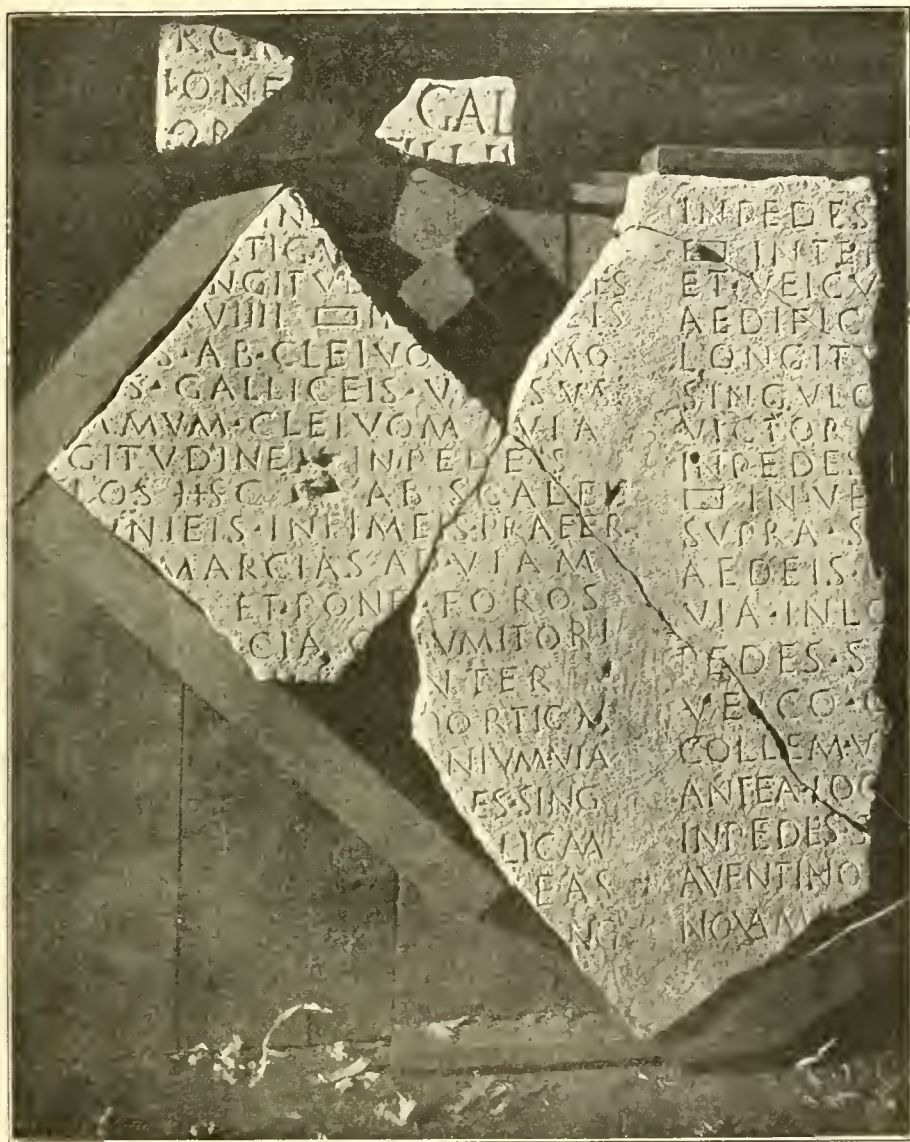 IONE
OR
GAL
IN
TICV
NGITVD ES
VIIII EIS
S·AB·CLEIVO MO
S·GALLICEIS·V SVA
AMVM·CLEIVOM VIA
GITVDINEM IN PEDES
LOS HSC AB SCALEI
INIEIS·INFIMEIS·PRAEFER
MARCIAS AD VIAM
ET·PONE FOROS
CIA·C NVMITORI
NTER
PORTICV
NIVM·VIA
ES·SING
LICAM
EAS
NG
IN·PEDES
INTER
ET·VEICV
AEDIFIC
LONGITV
SINGVLO
VICTOR
IN·PEDES
IN·VE
SVPRA·S
AEDEIS
VIA·IN LO
PEDES·S
VEICO·
COLLEM·V
ANTEA·LOC
IN PEDES S
AVENTINO
NOVAM